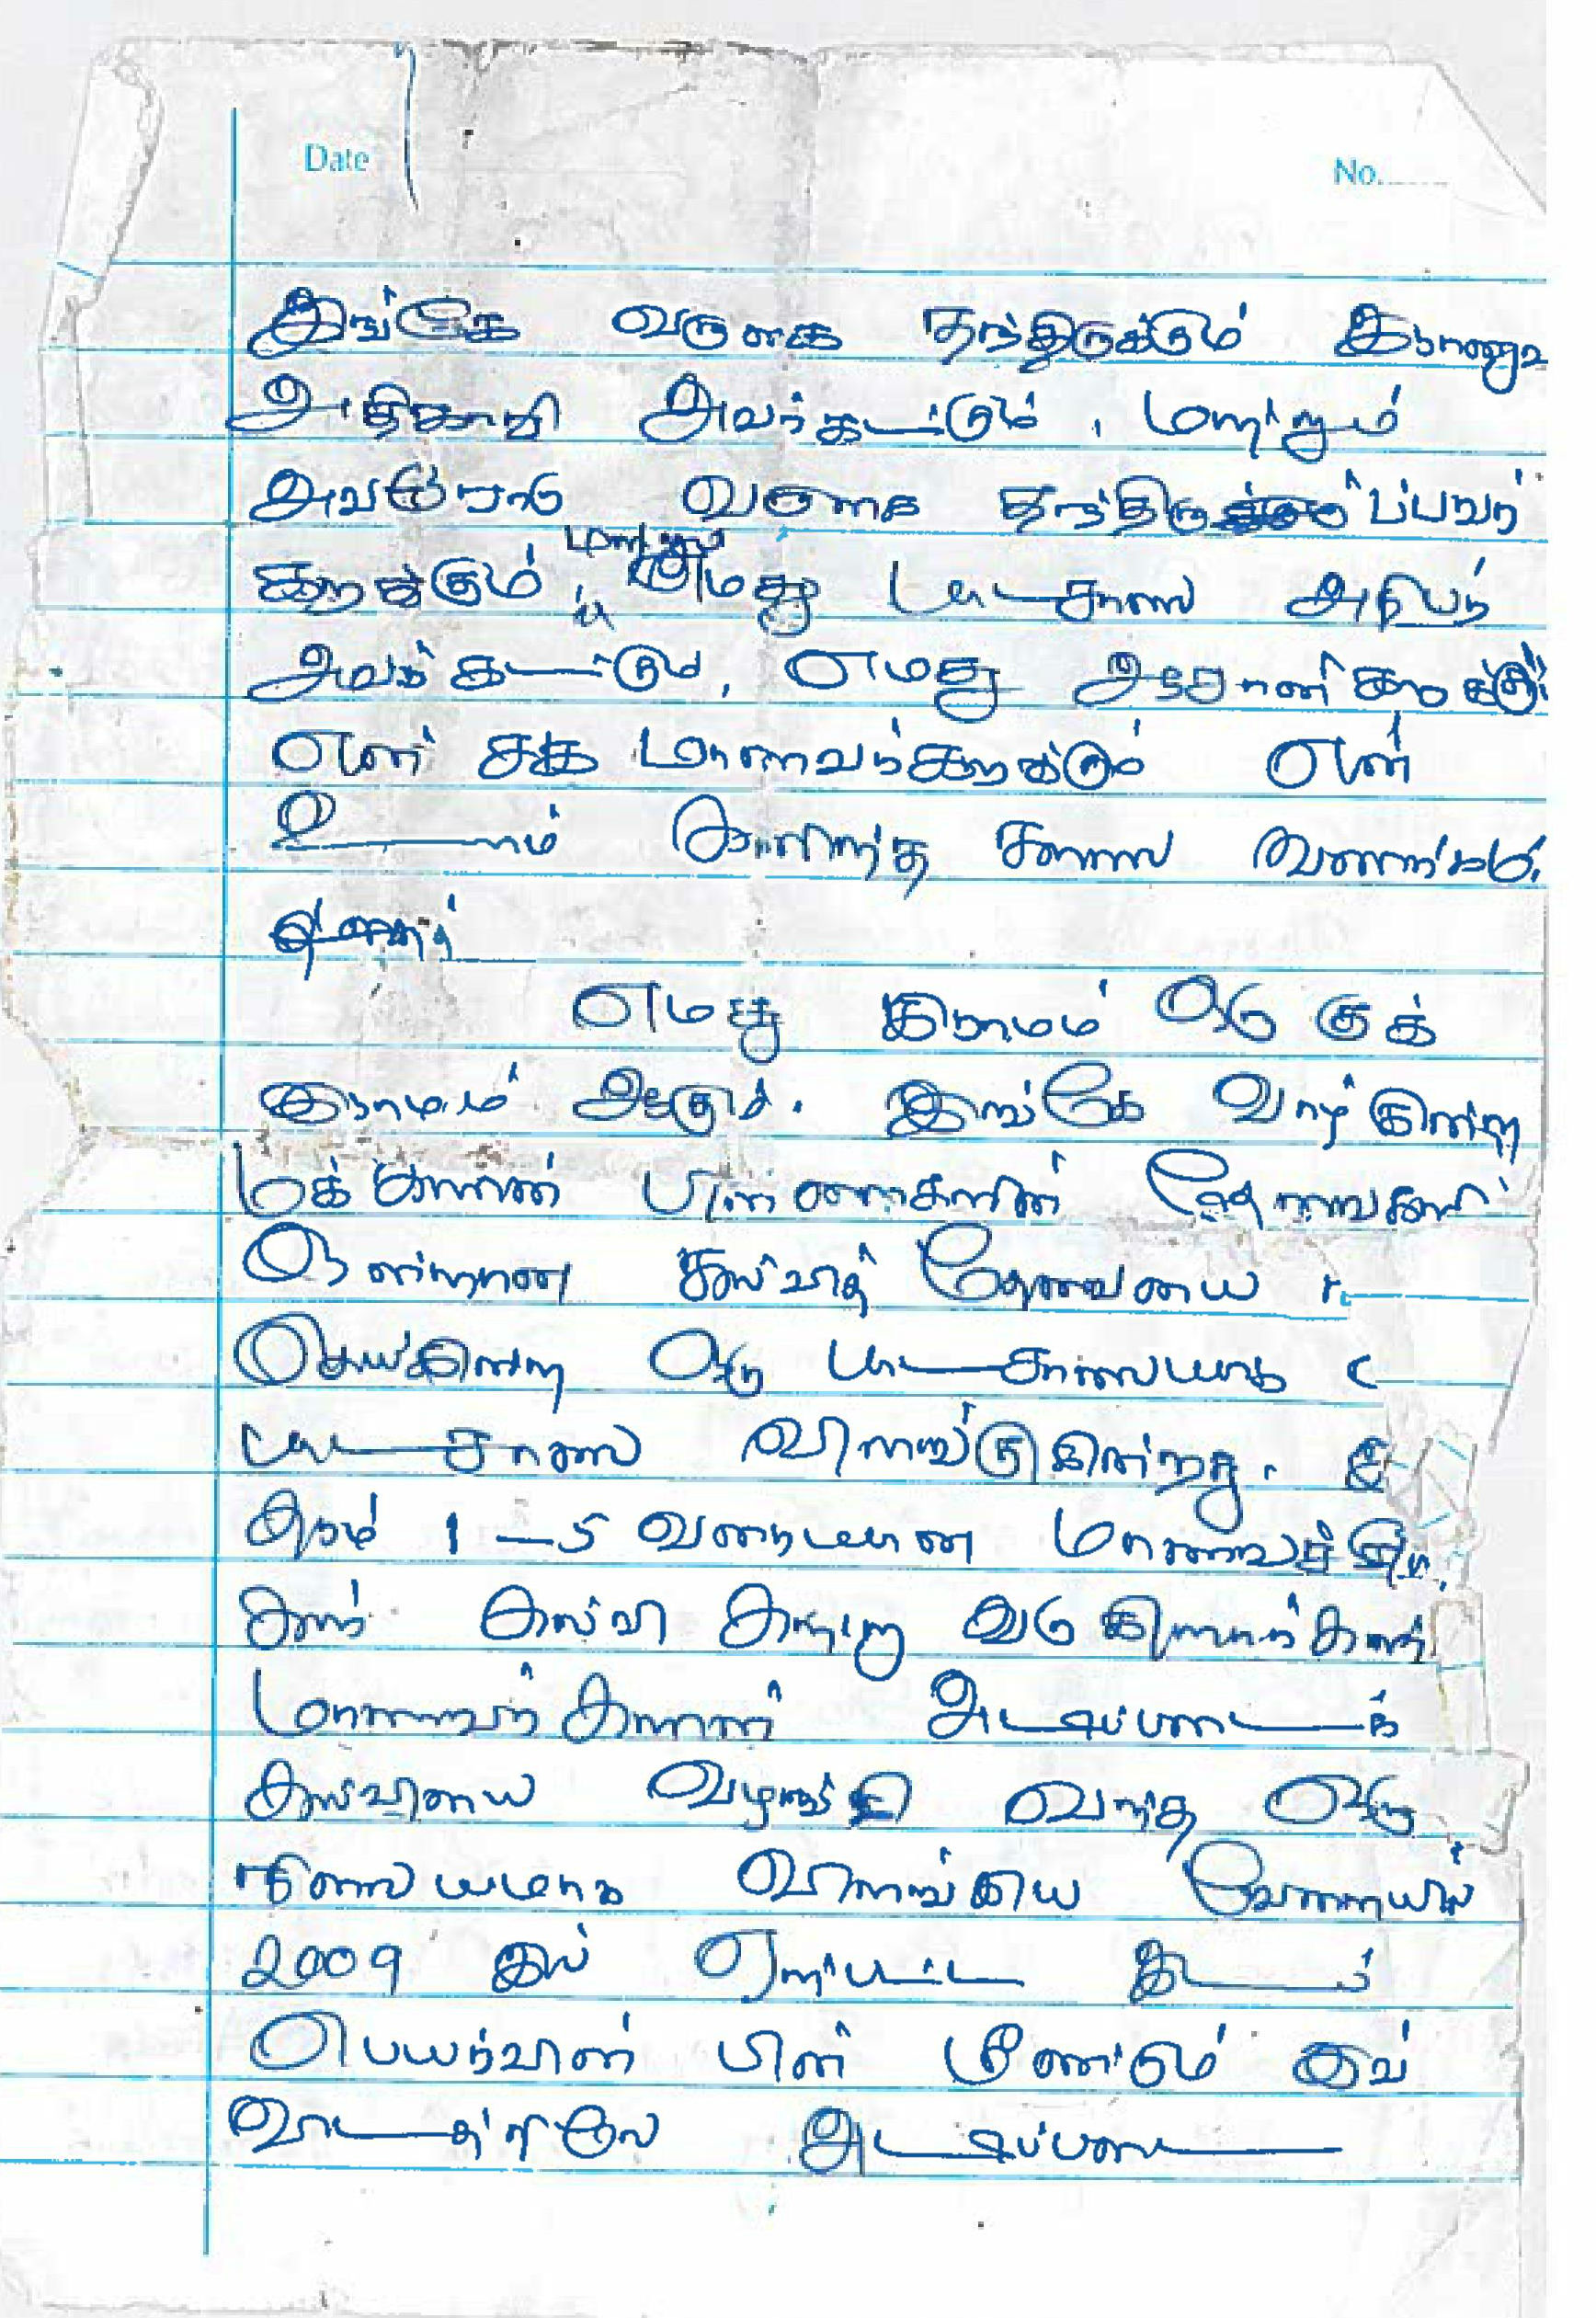 Date
No.......
இங்கே வருகை தந்திருக்கும் இராணுவ
அதிகாரி அவர்கட்கும், மற்றும்
அவரோடு வருகை தந்திருப்பவர்
களுக்கும் மற்றும் எமது பாடசாலை அதிபர்
அவர்கட்கும், எமது ஆசானிகளுக்கும்
என் சக மாணவர்களுக்கும் என்
உளம் கனிந்த காலை வணக்கம்.
எமது கிராமம் ஒரு குக்
கிராமம் ஆகும். இங்கே வாழ்கின்ற
மக்களின் பிள்ளைகளின் தேவைகளி
ஒன்றான கல்வித் தேவையை
செய்கின்ற ஒரு பாடசாலையாக
பாடசாலை விளங்குகின்றது.
தரம் 1-5 வரையான மாணவர்
கள் கல்வி கற்று வருகிறார்கள்
மாணவர்களின் அடிப்படைக்
கல்வியை வழங்கி வந்த ஒரு
நிலையமாக விளங்கிய வேளையில்
2009 இல் ஏற்பட்ட இடம்
பெயர்வின் பின் மீண்டும் இவ்
விடத்திலே அடிப்படை